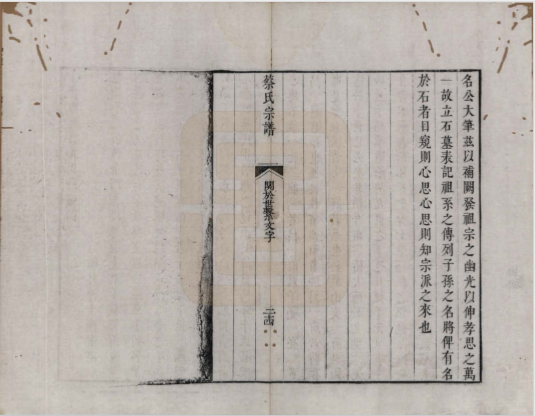 名公大筆茲以補闕發祖宗之幽光以伸孝思之萬
一故立石墓表記祖系之傳列子孫之名將俾有名
於石者目窺則心思心思則知宗派之來也
蔡氏宗譜
關於世系文字
二西